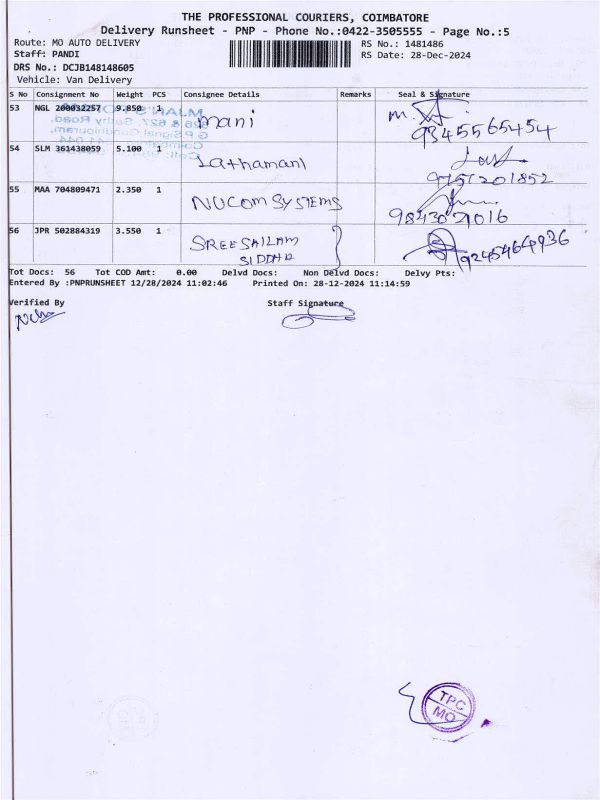 THE PROFESSIONAL COURIERS, COIMBATORE
Delivery Runsheet - PNP - Phone No.:0422-3505555 - Page No.:5
Route: MO AUTO DELIVERY
RS No.: 1481486
Staff: PANDI
RS Date: 28-Dec-2024
DRS No.: DCJB148148605
Vehicle: Van Delivery
S No Consignment No Weight PCS Consignee Details Remarks Seal & Signature
53 NGL 200032257 9.850 1 mani
9345565454
54 SLM 361438059 5.100 1 Lathamani
9751201852
55 MAA 704809471 2.350 1 NUCOM SYSTEMS
56 JPR 502884319 3.550 1 SREE SAILAM
SIDDHA
Tot Docs: 56 Tot COD Amt: 0.00 Delvd Docs: Non Delvd Docs: Delvy Pts:
Entered By :PNPRUNSHEET 12/28/2024 11:02:46 Printed On: 28-12-2024 11:14:59
Verified By Staff Signature
TPC
MO